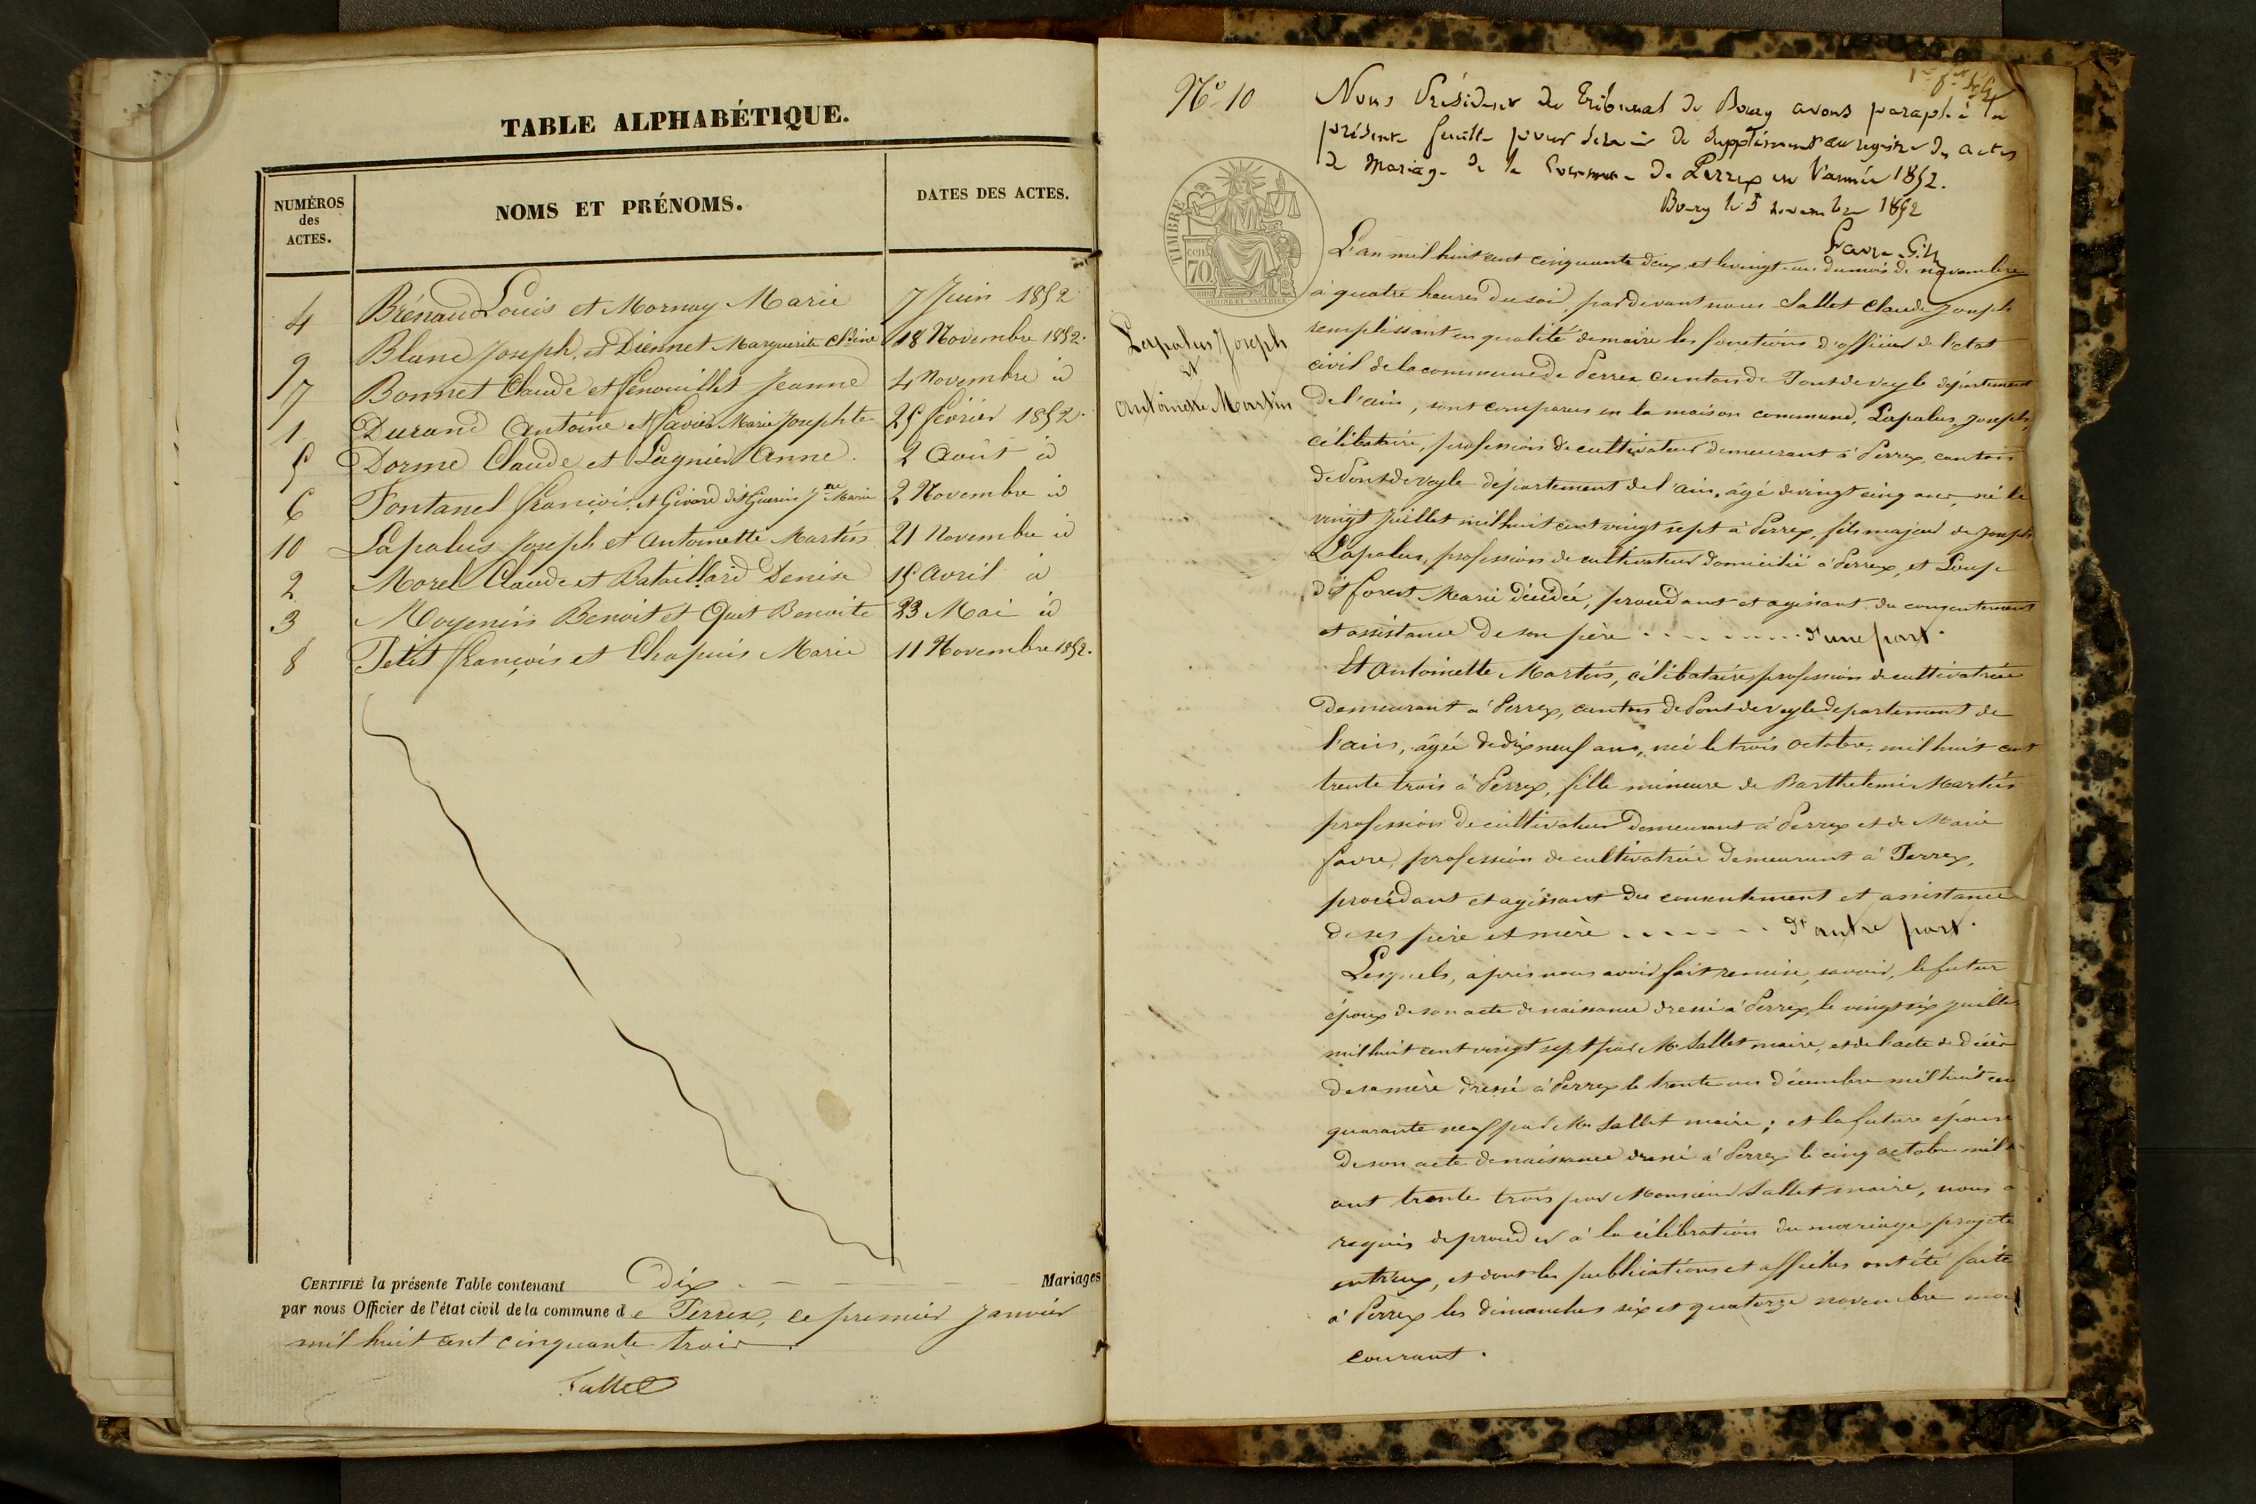 TABLE ALPHABÉTIQUE.
NUMÉROS des ACTES.
NOMS ET PRÉNOMS.
DATES DES ACTES.
4 Brénaud Louis et Mornay Marie 7 Juin 1852
9 Blanc Joseph et Diennet Marguerite 18 Novembre 1852.
7 Bonnet Claude et Genouillet Jeanne 4 Novembre id
1 Durand Antoine et Savier Marie Josephte 25 février 1852.
5 Dorme Claude et Lagnier Anne. 2 Août id
6 Fontanel françois et Givord dit Guerin Jne Marie 2 Novembre id
10 Lapalus Joseph et Antoinette Martin 21 Novembre id
2 Morel Claude et Bataillard Denise 15 Avril id
3 Moyenin Benoit et Quet Benoite 23 Mai id
8 Petit françois et Chapuis Marie 11 Novembre 1852.
CERTIFIÉ la présente Table contenant dix Mariages
par nous Officier de l'état civil de la commune de Perrex, ce premier Janvier
mil huit cent cinquante trois.
Sallet
No. 10
Nous Président du Tribunal de Bourg avons paraphé la
présente feuille pour servir de supplément au registre des actes
de Mariage de la Commune de Perrex en l'année 1852.
Bourg le 5 novembre 1852
Favre
TIMBRE
70
Lapalus Joseph
et
Antoinette Martin
L'an mil huit cent cinquante deux, et le vingt un du mois de novembre
à quatre heures du soir, pardevant nous Sallet Claude Joseph
remplissant en qualité de maire les fonctions d'officier de l'etat
civil de la commune de Perrex canton de Pontdeveyle département
de l'ain, sont comparus en la maison commune, Lapalus Joseph,
célibataire, profession de cultivateur demeurant à Perrex, canton
de Pontdeveyle département de l'ain, âgé de vingt cinq ans, né le
vingt Juillet mil huit cent vingt sept à Perrex, fils majeur de Joseph
Lapalus, profession de cultivateur domicilié à Perrex, et Loup
dit forest Marie décédée, procédant et agissant du consentement
et assistance de son père d'une part.
Et Antoinette Martin, célibataire, profession de cultivatrice
demeurant à Perrex, canton de Pontdeveyle departement de
l'ain, âgée de dix neuf ans, née le trois octobre mil huit cent
trente trois à Perrex, fille mineure de Barthelemi Martin
profession de cultivateur demeurant à Perrex et de Marie
favre, profession de cultivatrice demeurant à Perrex,
procédant et agissant du consentement et assistance
de ses père et mère d'autre part.
Lesquels, après nous avoir fait remise, savoir, le futur
époux de son acte de naissance dressé à Perrex, le vingt six juillet
mil huit cent vingt sept par Mr Sallet maire, et de l'acte de décès
de sa mère dressé à Perrex le trente un décembre mil huit cen
quarante neuf par Mr Sallet maire; et la future épouse
de son acte de naissance dressé à Perrex le cinq octobre mil
cent trente trois par Monsieur Sallet maire, nous
requis de procéder à la célébration du mariage projeté
entreux, et dont les publications et affiches ont été faite
à Perrex les dimanches six et quatorze novembre
courant.